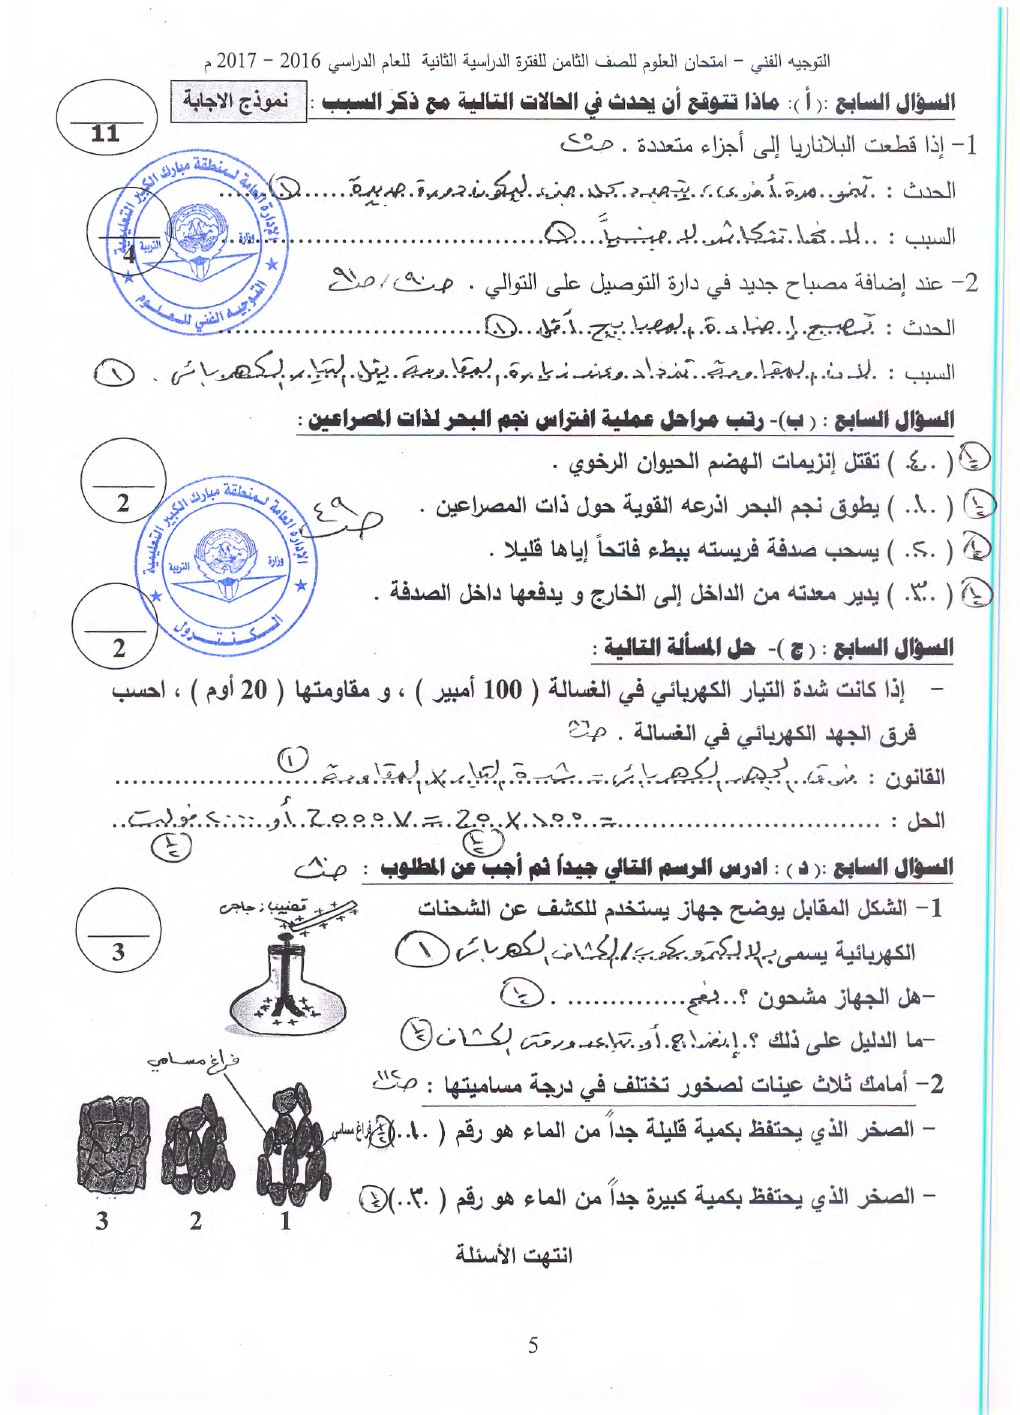 التوجيه الفني – امتحان العلوم للصف الثامن للفترة الدراسية الثانية للعام الدراسي 2016 – 2017 م
السؤال السابع :( أ ): ماذا تتوقع أن يحدث في الحالات التالية مع ذكر السبب :
نموذج الاجابة
11
1- إذا قطعت البلاناريا إلى أجزاء متعددة . ص٣٥
الحدث : تنمو مرة أخرى، يتجدد كل جزء ليكون دودة جديدة (١)
السبب : لأنها تتكاثر لا جنسياً (١)
4
2- عند إضافة مصباح جديد في دارة التوصيل على التوالي . ص٩٠ / ص٩١
الحدث : تصبح إضاءة المصابيح أقل (١)
السبب : لأن المقاومة تزداد وعند زيادة المقاومة يقل التيار الكهربائي . (١)
السؤال السابع : ( ب )- رتب مراحل عملية افتراس نجم البحر لذات المصراعين :
( ٤ ) تقتل إنزيمات الهضم الحيوان الرخوي .
( ١ ) يطوق نجم البحر اذرعه القوية حول ذات المصراعين .
ص٤٩
2
( ٢ ) يسحب صدفة فريسته ببطء فاتحاً إياها قليلا .
( ٣ ) يدير معدته من الداخل إلى الخارج و يدفعها داخل الصدفة .
السؤال السابع : ( ج )- حل المسألة التالية :
2
– إذا كانت شدة التيار الكهربائي في الغسالة ( 100 أمبير ) ، و مقاومتها ( 20 أوم ) ، احسب
فرق الجهد الكهربائي في الغسالة .
القانون : فرق الجهد الكهربائي = شدة التيار × المقاومة (١)
الحل : = ١٠٠ × 20 = 2000 V أو ٢٠٠٠ فولت
السؤال السابع :( د ) : ادرس الرسم التالي جيداً ثم أجب عن المطلوب : ص٨٠
3
1- الشكل المقابل يوضح جهاز يستخدم للكشف عن الشحنات
قضيب زجاجي
الكهربائية يسمى بـ الالكتروسكوب / الكشاف الكهربائي (١)
-هل الجهاز مشحون ؟ نعم .
-ما الدليل على ذلك ؟ إنفراج أو تباعد ورقتي الكشاف
2- أمامك ثلاث عينات لصخور تختلف في درجة مساميتها : ص١١٢
فراغ مسامي
– الصخر الذي يحتفظ بكمية قليلة جداً من الماء هو رقم ( ١ )
فراغ مسامي
– الصخر الذي يحتفظ بكمية كبيرة جداً من الماء هو رقم ( ٣ )
1 2 3
انتهت الأسئلة
5
الإدارة العامة لمنطقة مبارك الكبير التعليمية
وزارة التربية
التوجيه الفني للعلوم
الإدارة العامة لمنطقة مبارك الكبير التعليمية
وزارة التربية
الكنترول